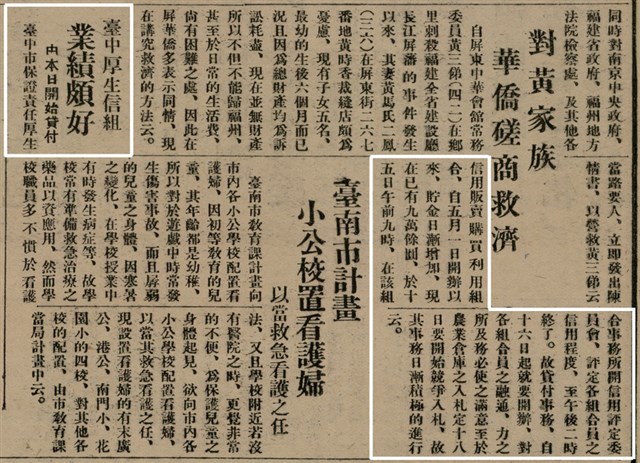 同時對南京中央政府、
福建省政府、福州地方
法院檢察處、及其他各
當路要人、立即發出陳
情書、以營救黃三梯云
對黃家族
華僑磋商救濟
自屏東中華會館常務
委員黃三梯(四二)在鄉
里刺殺福建全省建設廳
長江屏藩的事件發生
以來、其妻黃馬氏二鳳
(三六)在屏東街二六七
番地黃時香裁縫店頗為
憂慮、現有子女五名、
最幼的生後六個月而已
況且因為總財產均為訴
訟耗盡、現在並無財產
所以不但不能歸福州、
甚至於日常的生活費、
尙有困難之處、因此在
屏華僑多表示同情、現
在講究救濟的方法云。
臺中厚生信組
業績頗好
由本日開始貸付
臺中市保證責任厚生
信用販賣購買利用組
合、自五月一日開辦以
來、貯金日漸增加、現
在已有九萬餘圓、於十
五日午前九時、在該組
合事務所開信用評定委
員會、評定各組合員之
信用程度、至午後二時
終了。故貸付事務、自
十六日起就要開辦、對
各組合員之融通、力之
所及務必使之滿意至於
農業倉庫之入札定十八
日要開始競爭入札、故
其事務日漸積極的進行
云。
臺南市計畫
小公校置看護婦
以當救急看護之任
臺南市教育課計畫向
市內各小公學校配置看
護婦、因初等教育的兒
童、其年齡都是幼稚、
所以對於遊戲中時常發
生傷害事故、而且孱弱
的兒童之身體、因寒暑
之變化、在學校授業中
有時發生病症等、故學
校常有準備救急治療之
藥品以資應用、然而學
校職員多不慣於看護
法、又且學校附近若沒
有醫院之時、更覺非常
的不便、為保護兒童之
身體起見、欲向市內各
小公學校配置看護婦、
以當其救急看護之任、
現設置看護婦的有末廣
公、港公、南門小、花
園小的四校、對其他各
校的配置、由市教育課
當局計畫中云。